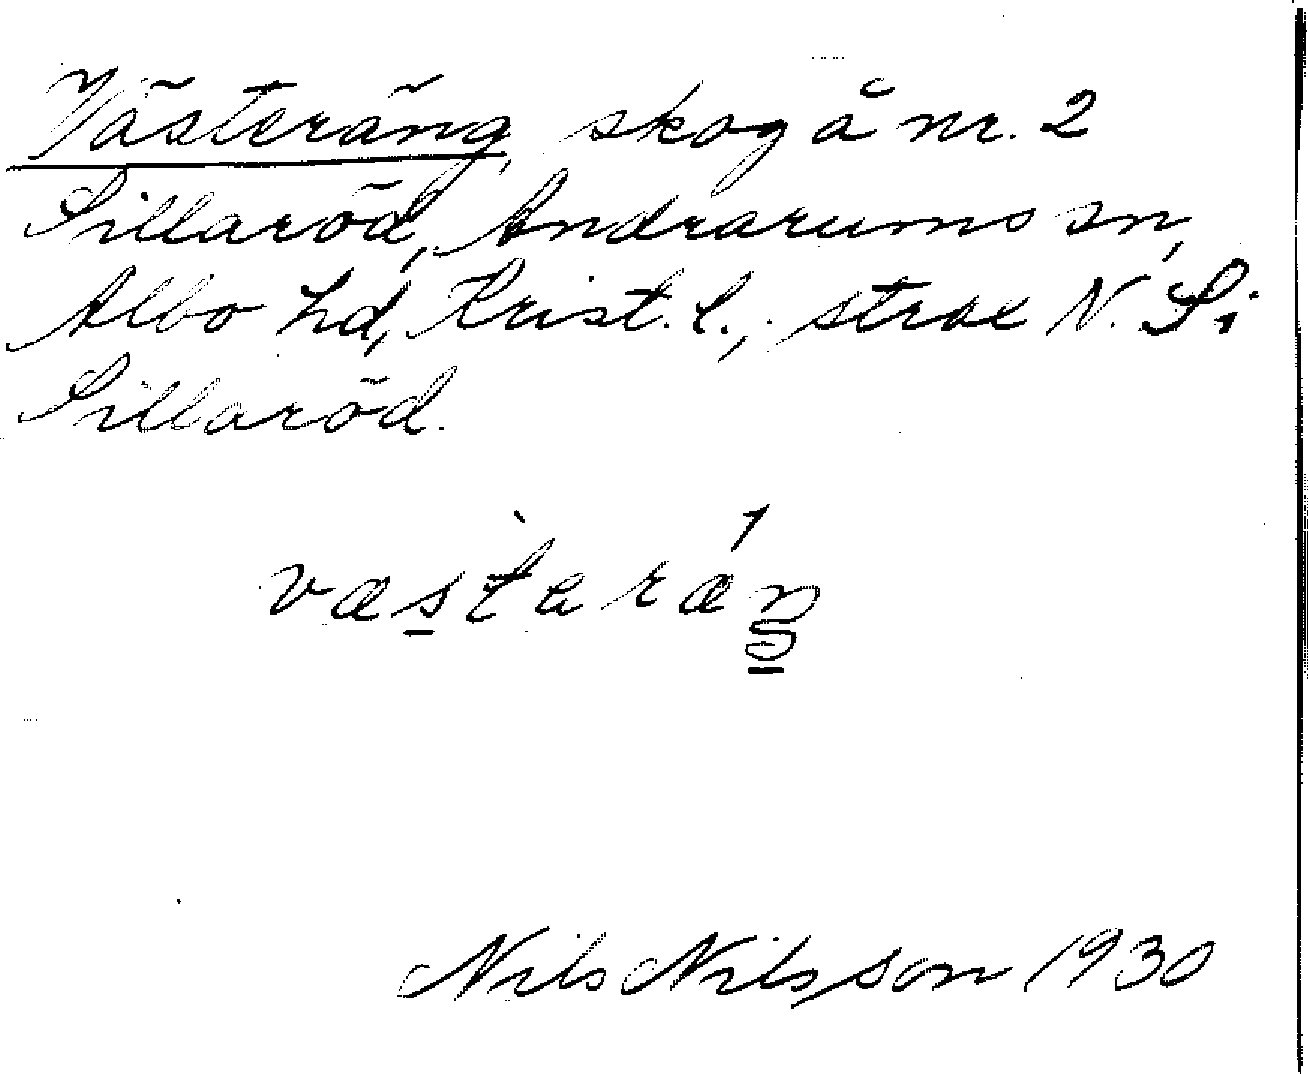 Västeräng, skog å nr. 2
Sillaröd, Andrarums sn,
Albo hd, Krist. l., strax N. S:
Sillaröd.
væstaræŋ
Nils Nilsson 1930